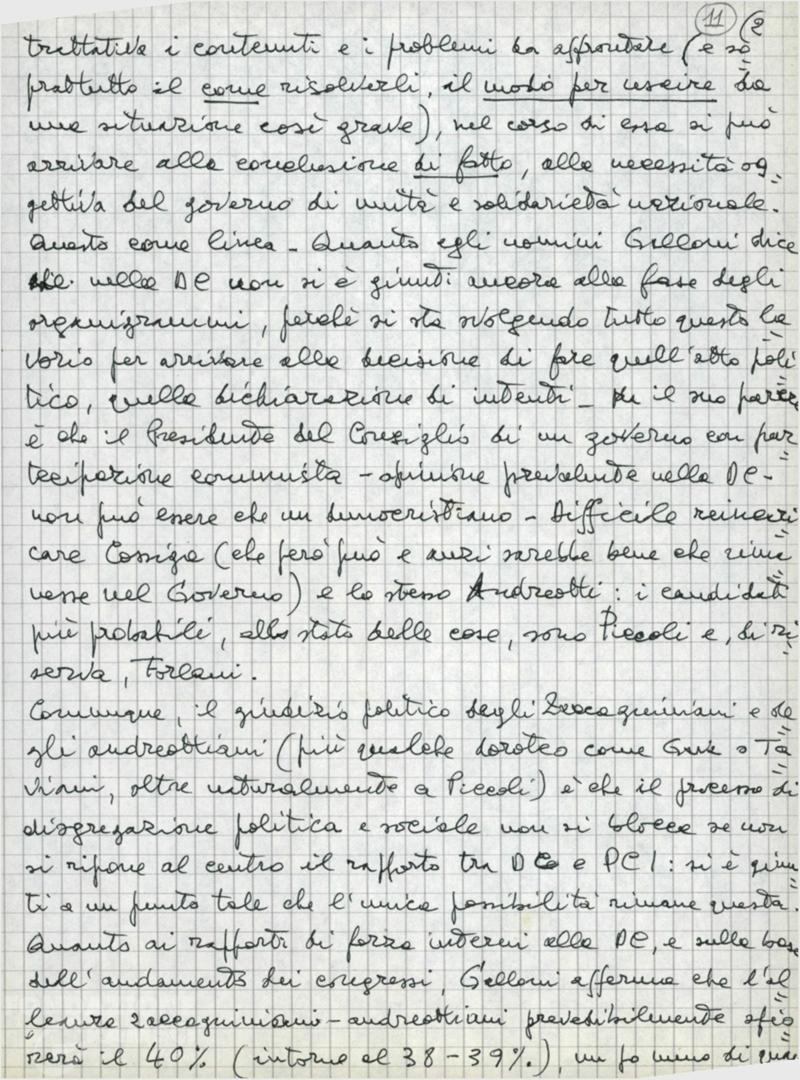 11 (2
trattativa i contenuti e i problemi da affrontare (e so
prattutto il come risolverli, il modo per uscire da
una situazione così grave), nel corso di essa si può
arrivare alla conclusione di fatto, alla necessità og-
gettiva del governo di unità e solidarietà nazionale.
Questo come linea - Quanto agli uomini Galloni dice
che nella DC non si è giunti ancora alla fase degli
organigrammi, perché si sta svolgendo tutto questo la
voro per arrivare alla decisione di fare quell'atto poli
tico, quella dichiarazione di intenti - il suo parere
è che il Presidente del Consiglio di un governo con par
tecipazione comunista - opinione prevalente nella DC -
non può essere che un democristiano - Difficile reincari
care Cossiga (che però può e anzi sarebbe bene che rima
nesse nel Governo) e lo stesso Andreotti: i candidati
più probabili, allo stato delle cose, sono Piccoli e, di ri
serva, Forlani.
Comunque, il giudizio politico degli zaccagniniani e de
gli andreottiani (più qualche doroteo come Gui o Ta
viani, oltre naturalmente a Piccoli) è che il processo di
disgregazione politica e sociale non si blocca se non
si ripone al centro il rapporto tra DC e PCI: si è giun
ti a un punto tale che l'unica possibilità rimane questa.
Quanto ai rapporti di forza interni alla DC, e sulla base
dell'andamento dei congressi, Galloni afferma che l'al
leanza zaccagniniani-andreottiani prevedibilmente sfio
rerà il 40% (intorno al 38-39%), un po meno di quan